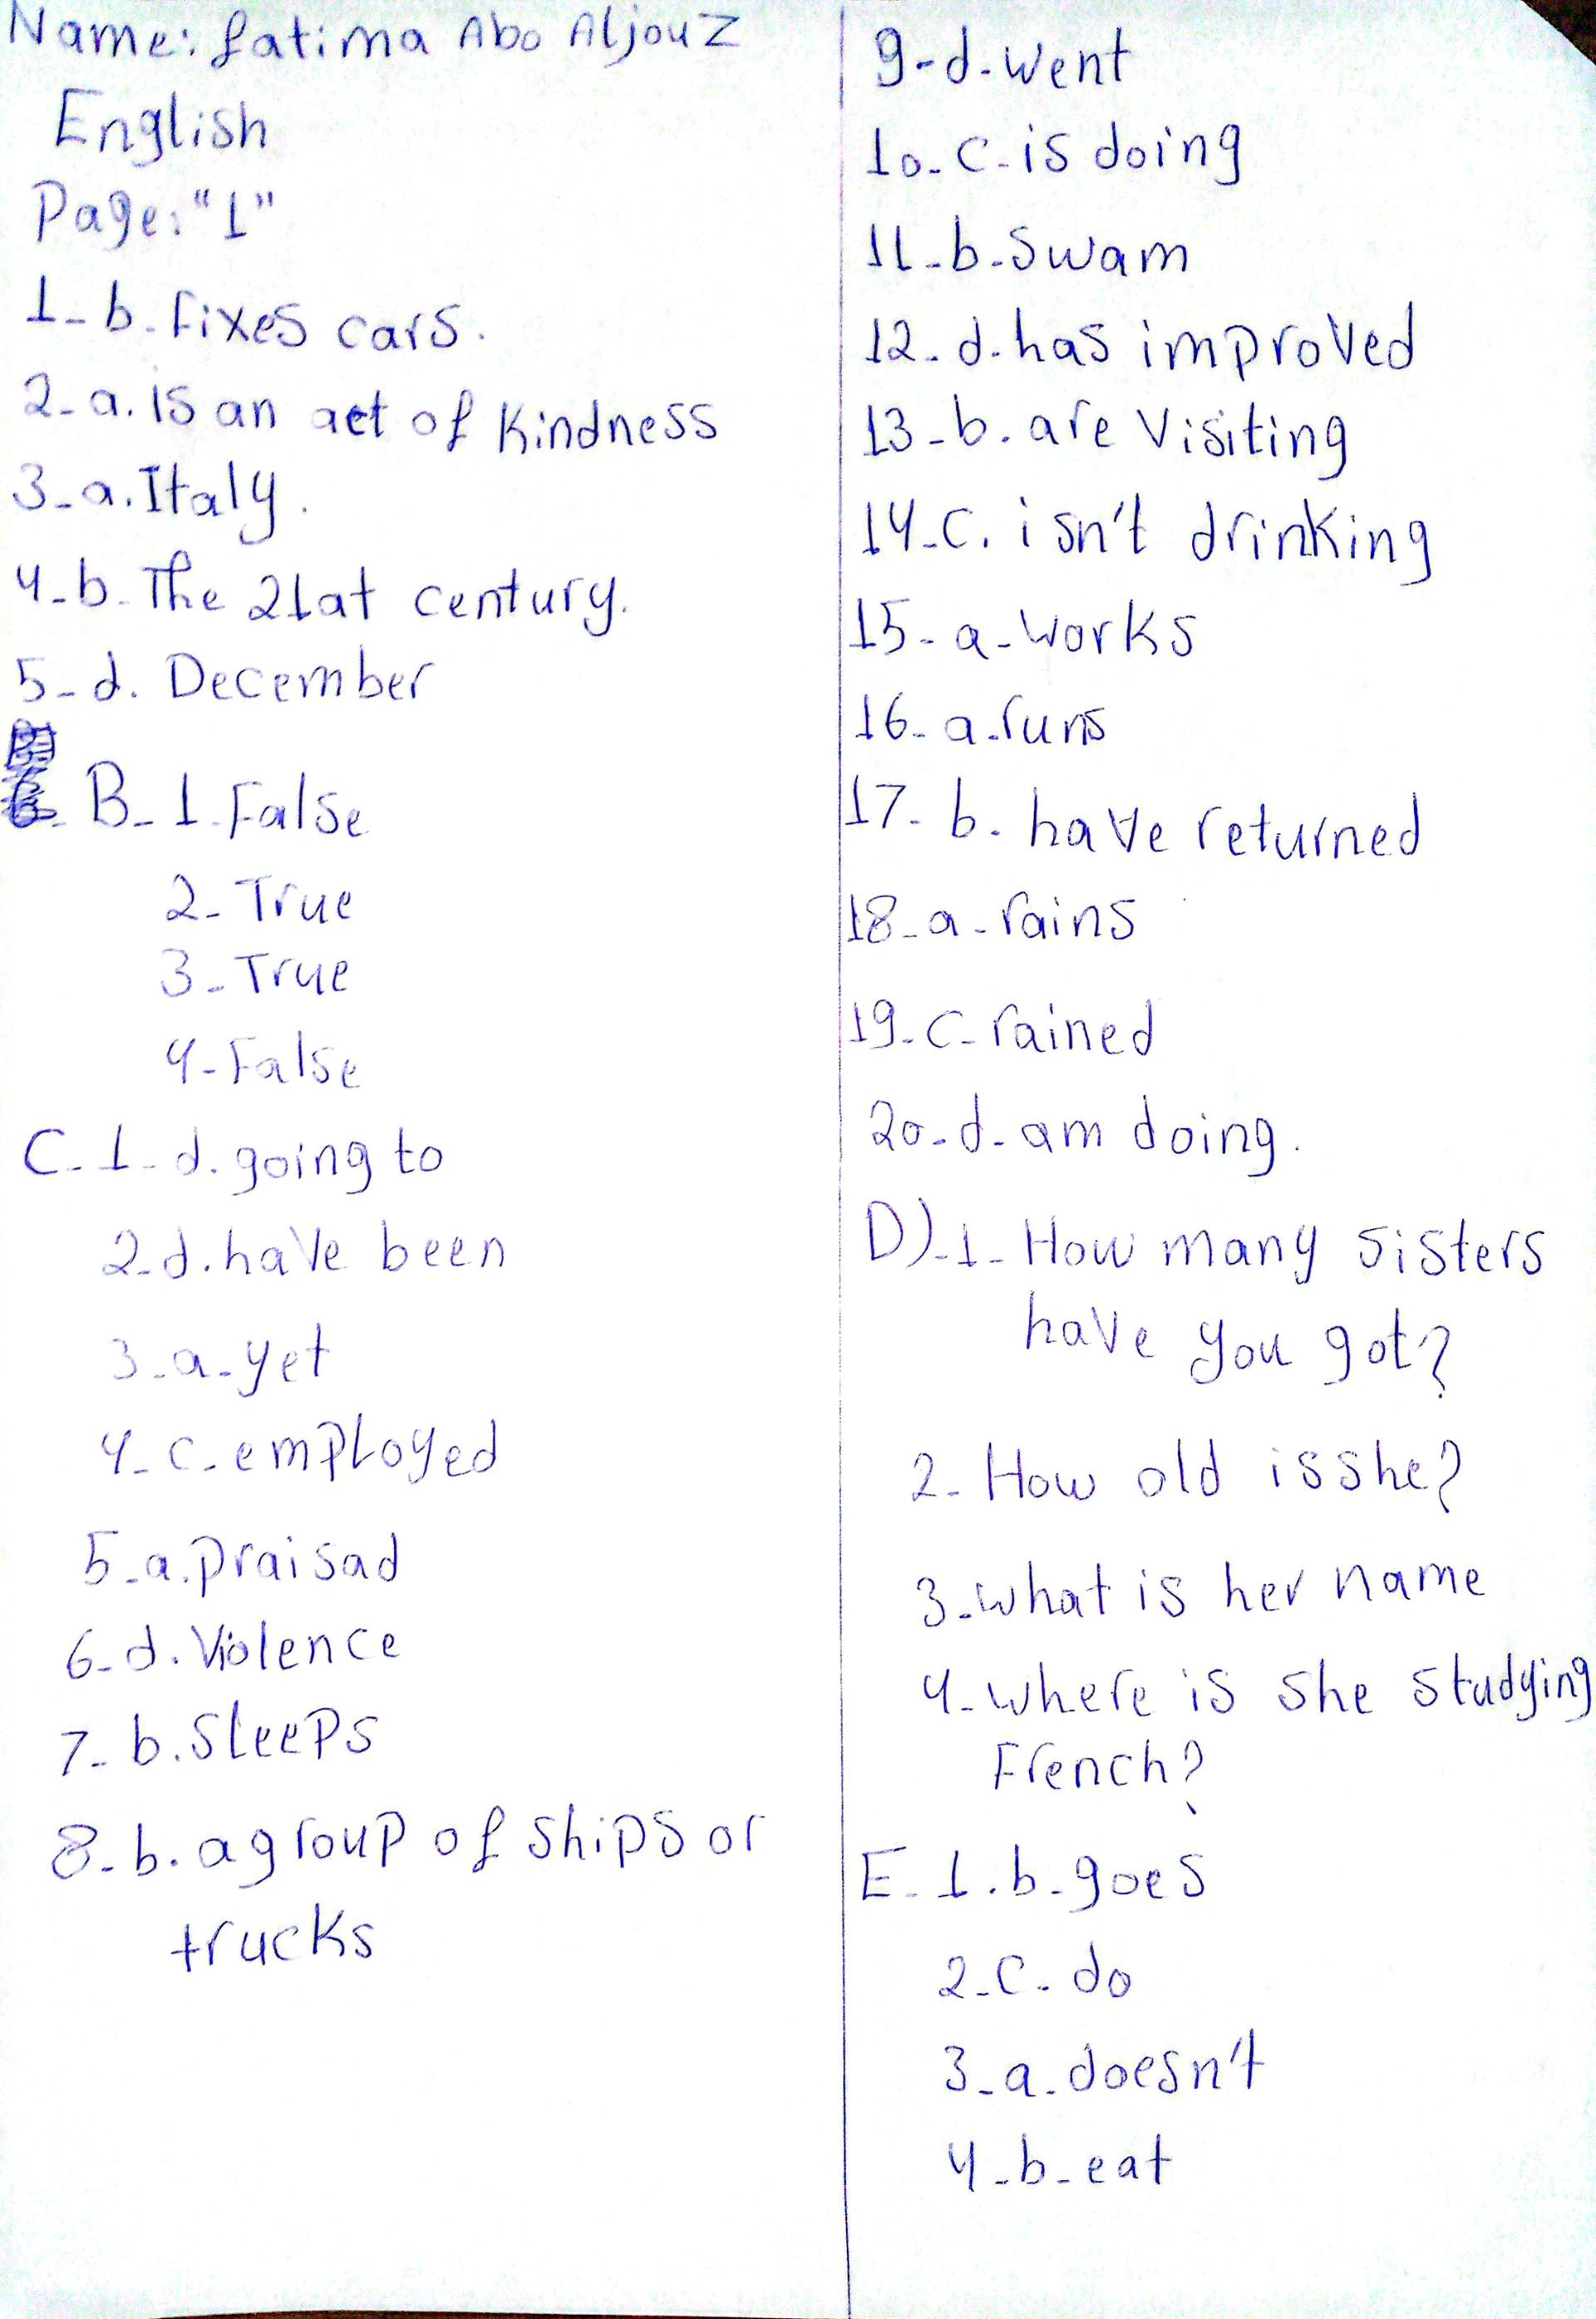 Name: fatima Abo Aljouz
English
Page: "1"
1- b. fixes cars.
2- a. is an act of kindness
3- a. Italy.
4- b. The 21at century.
5- d. December
B- 1. False
2- True
3- True
4- False
C- 1- d. going to
2- d. have been
3- a- yet
4- c- employed
5- a. praisad
6- d. Violence
7- b. sleeps
8- b. a group of ships or
trucks
9- d. went
10- c- is doing
11- b. swam
12- d. has improved
13- b. are visiting
14- c. isn't drinking
15- a- works
16- a. runs
17- b. have returned
18- a- rains
19- c- rained
20- d- am doing.
D)- 1- How many sisters
have you got?
2- How old is she?
3- what is her name
4- where is she studying
French?
E- 1. b- goes
2- c- do
3- a- doesn't
4- b- eat